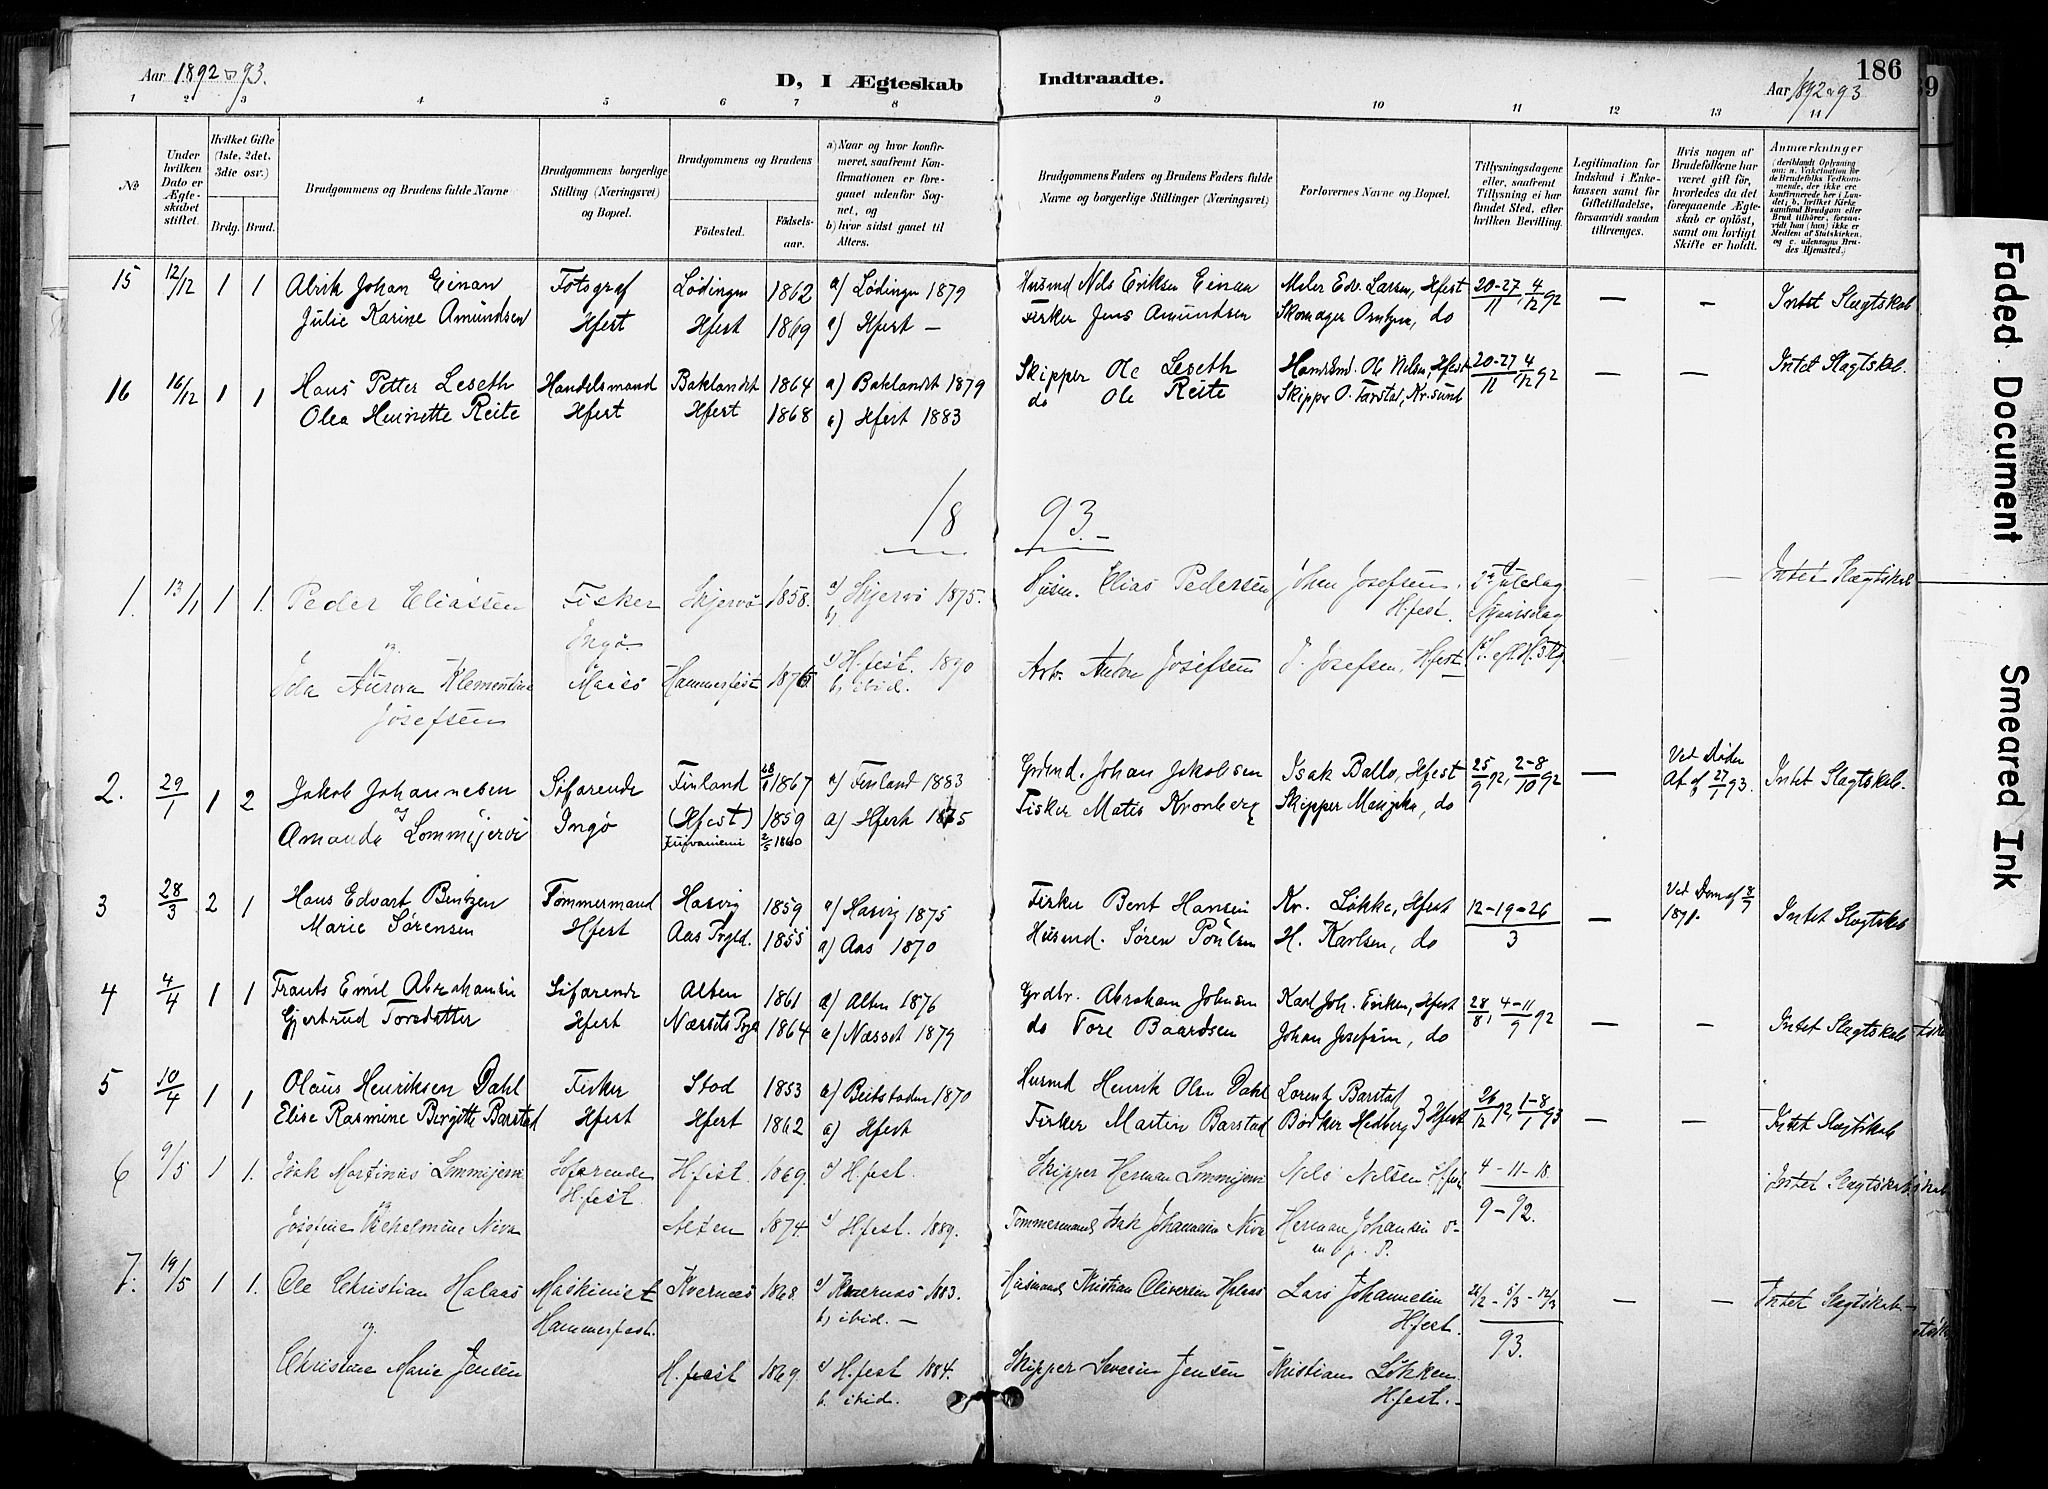 186
Aar 1892 & 93.
D, I Ægteskab Indtraadte.
Aar 1892 & 93
1 2 3 4 5 6 7 8 9 10 11 12 13 14
No
Under hvilken Dato er Ægteskabet stiftet.
Hvilket Gifte (1ste, 2det, 3die osv.)
Brdg. Brud.
Brudgommens og Brudens fulde Navne
Brudgommens borgerlige Stilling (Næringsvei) og Bopæl.
Brudgommens og Brudens
Födested.
Födsels-aar.
a) Naar og hvor konfirmeret, saafremt Konfirmationen er foregaaet udenfor Sognet, og
b) hvor sidst gaaet til Alters.
Brudgommens Faders og Brudens Faders fulde Navne og borgerlige Stillinger (Næringsvei)
Forlovernes Navne og Bopæl.
Tillysningsdagene eller, saafremt Tillysning ei har fundet Sted, efter hvilken Bevilling.
Legitimation for Indskud i Enkekassen samt for Giftetilladelse, forsaavidt saadan tiltrænges.
Hvis nogen af Brudefolkene har været gift før, hvorledes da det foregaaende Ægteskab er opløst, samt om lovligt Skifte er holdt.
Anmærkninger
(deriblandt Oplysning om: a. Vakcination for de Brudefolks Vedkommende, der ikke ere konfirmerede her i Landet; b. hvilket Kirkesamfund Brudgom eller Brud tilhører, forsaavidt han (hun) ikke er Medlem af Statskirken, og c. udensogns Brudes Hjemsted.)
15 12/12 1 1 Alrik Johan Einan Fotograf Lødingen 1862 a) Lødingen 1879 Husmd Nils Eriksen Einan Maler Edv. Larsen, Hfest 20-27/11, 4/12 92 — — Intet Slagtskab
Julie Karine Amundsen Hfest Hfest 1869 a) Hfest — Fisker Jens Amundsen Skomager Arntzen, do
16 16/12 1 1 Hans Petter Leseth Handelsmand Baklandet 1864 a) Baklandet 1879 Skipper Ole Leseth Ole Nilsen, Hfest 20-27/11 4/12 92 — — Intet Slagtskab.
Olea Henriette Reite Hfest Hfest 1868 a) Hfest 1883 do Ole Reite Skipper O. Farstad, Kr.sund
18 93.—
1. 13/1 1 1. Peder Eliassen Fisker Skjervø 1858. a) Skjervø 1875. Elias Pedersen Josefsen, Intet Slægtskab
og Ingø b) H.fest.
Ida Aurora Klementine Maasø Hammerfest 1876 a) H.fest. 1890 Arb. Anton Josefsen J. Josefsen, Hfest
Josefsen b, ibid.
2. 29/1 1 2 Jakob Johannesen Søfarende Finland 1867 a) Finland 1883 Grdmd. Johan Jakobsen Isak Ballo, Hfest 25/9 92, 2-8/10 92 — Ved Døden Af d 27/1 93. Intet Slagtskab.
og Amanda Lommijervi Ingø (Hfest) 1859 a) Hfest 1875 Fisker Mates Kronberg Skipper do
2/5 1860
3 28/3 2 1 Hans Edvart Bentzen Tømmermand Hasvig 1859 a) Hasvig 1875 Fisker Bent Hansen Kr. Løkke, Hfest 12-19-26/3 — Ved Dom af 8/7 Intet Slagtskab
Marie Sørensen Hfest Aas Prgld. 1855 a) Aas 1870 Husmd. Søren Poulsen H. Karlsen, do
4 4/4 1 1 Frants Emil Abrahamsen Søfarende Alten 1861 a) Alten 1876 Grdbr. Abraham Johnsen Karl Joh. Eriksen, Hfest 28/8, 4-11/9 92 — — Intet Slagtskab
Gjertrud Toresdatter Hfest Nessets Prgld 1864 a) Nesset 1879 do Tore Baardsen Johan Josefsen, do
5 10/4 1 1 Olaus Henriksen Dahl Fisker Stod 1853 a) Beitstaden 1870 Husmd Henrik Olsen Dahl Lorentz Barstad 26/12 92, 1-8/1 93 — — Intet Slagtskab
Elise Rasmine Birgitte Barstad Hfest Hfest 1862 a) Hfest Fisker Martin Barstad Bødker Hedberg } Hfest
6 9/5 1 1. Isak Martinus Lommijervi Søfarende H.fest. 1869. a) H.fest. Skipper Herman Lommijervi Nils Nilsen H.fest 4-11-18. Intet Slægtskab
og H.fest.
Josefine Vilhelmine Niva Alten 1874. a) Hfest. 1889. Tømmermand Isak Johannesen Niva Herman Johansen 9-92.
7. 19/5 1 1. Ole Christian Halaas Maskinist Kvernæs 1868. a) Kvernæs 1883. Husmand Kristian Oliversen Halaas Lars Johannesen 26/2 - 5/3 - 12/3 — — Intet Slægtskab
og Hammerfest. b) ibid. — Hfest. 93.
Christine Marie Jensen H.fest 1869. a) H.fest 1884. Skipper Severin Jensen Kristian Løkken
b. ibid. Hfest.-
Faded Document
Smeared Ink